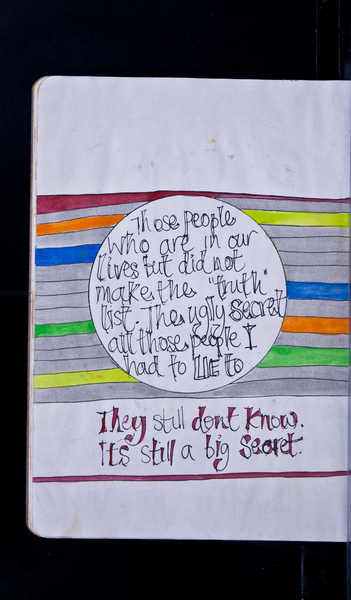 Those people
who are in our
lives but did not
make the "truth"
list. The ugly secret
all those people I
had to LIE to
They still don't know.
It's still a big secret.